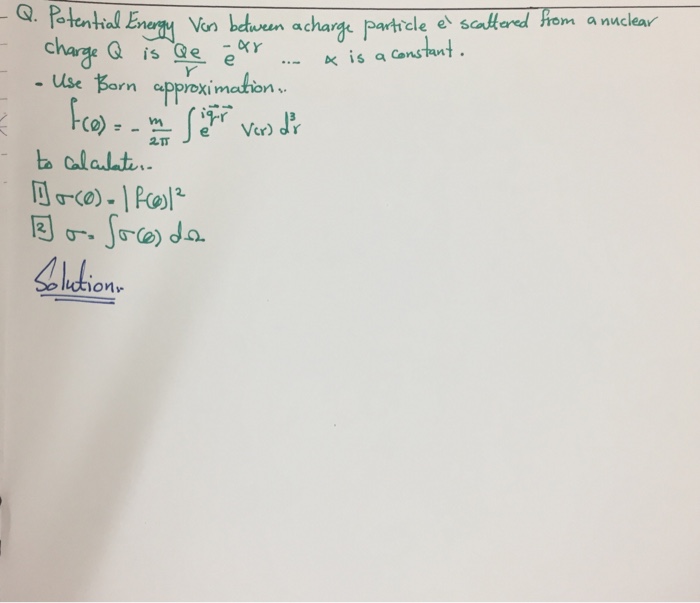 Q. Potential Energy V(r) between a charge particle e' scattered from a nuclear
charge Q is Qe/r e^-αr .... α is a constant.
- Use Born approximation..
f(θ) = - m/2π ∫ e^iq⃗·r⃗ V(r) d³r
to calculate..
[1] σ(θ) = |f(θ)|²
[2] σ = ∫σ(θ) dΩ
Solution..